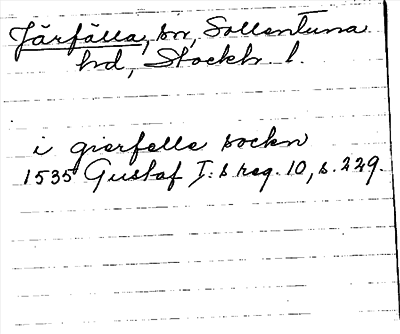 Järfälla, sn, Sollentuna
hd, Stockh. l.
i gierfelle sockn
1535 Gustaf I:s reg. 10, s. 229.